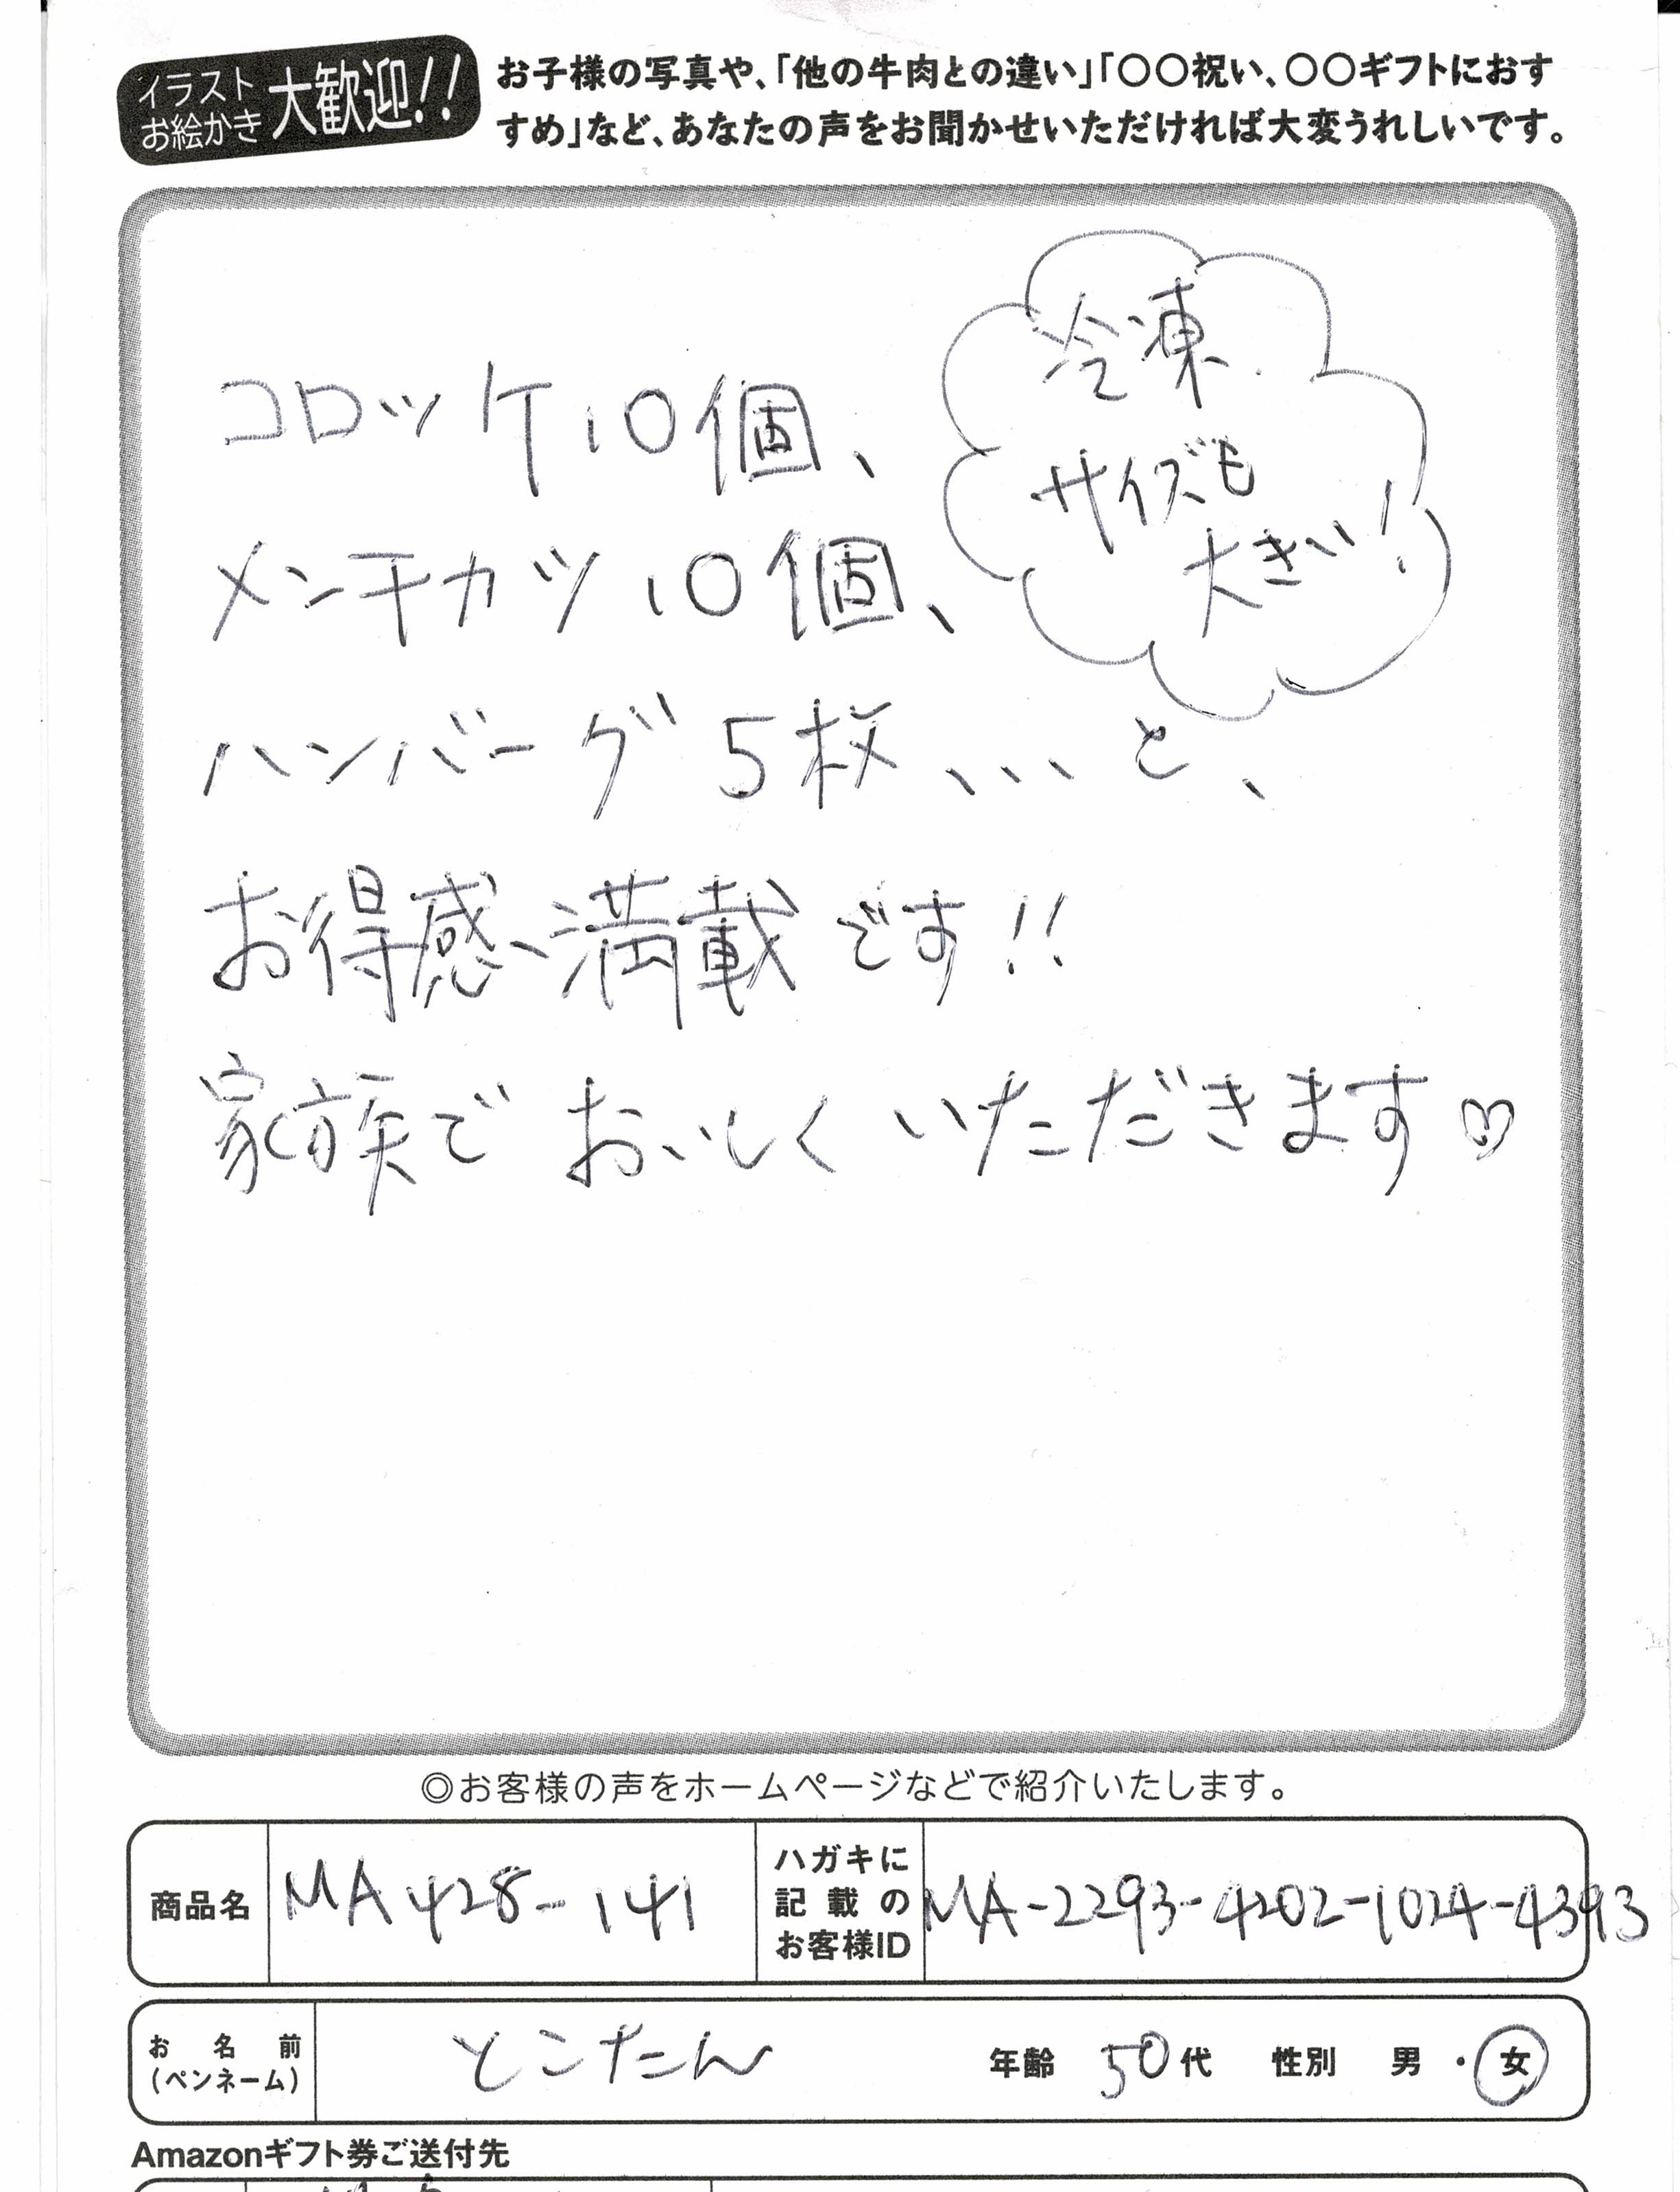 イラスト
お絵かき
大歓迎!!
お子様の写真や、「他の牛肉との違い」「〇〇祝い、〇〇ギフトにおす
すめ」など、あなたの声をお聞かせいただければ大変うれしいです。
冷凍
サイズも
大きい!
コロッケ10個、
メンチカツ10個、
ハンバーグ5枚、、、と、
お得感、満載です!!
家族でおいしくいただきます♡
◎お客様の声をホームページなどで紹介いたします。
商品名
MA428-141
ハガキに
記載の
お客様ID
MA-2293-4202-1024-4393
お名前
(ペンネーム)
とこたん
年齢 50代 性別 男・女
Amazonギフト券ご送付先